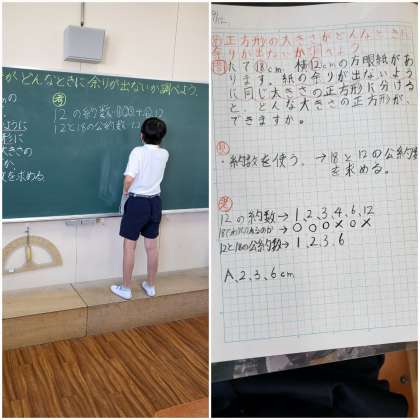 どんなときに余りが出ないか調べよう。
考
12の約数
12と18の公約数
ように
形に
大きさの
か。
を求める。
正方形の大きさがどんなときに
余りが出ないか調べよう
たて18cm、横12cmの方眼紙があ
ります。紙の余りが出ないよう
に同じ大きさの正方形に分ける
と、どんな大きさの正方形が、
できますか。
・約数を使う。→18と12の公約数
を求める。
考
12の約数→1,2,3,4,6,12
○○○×○×
12と18の公約数→1,2,3,6
A,2,3,6cm